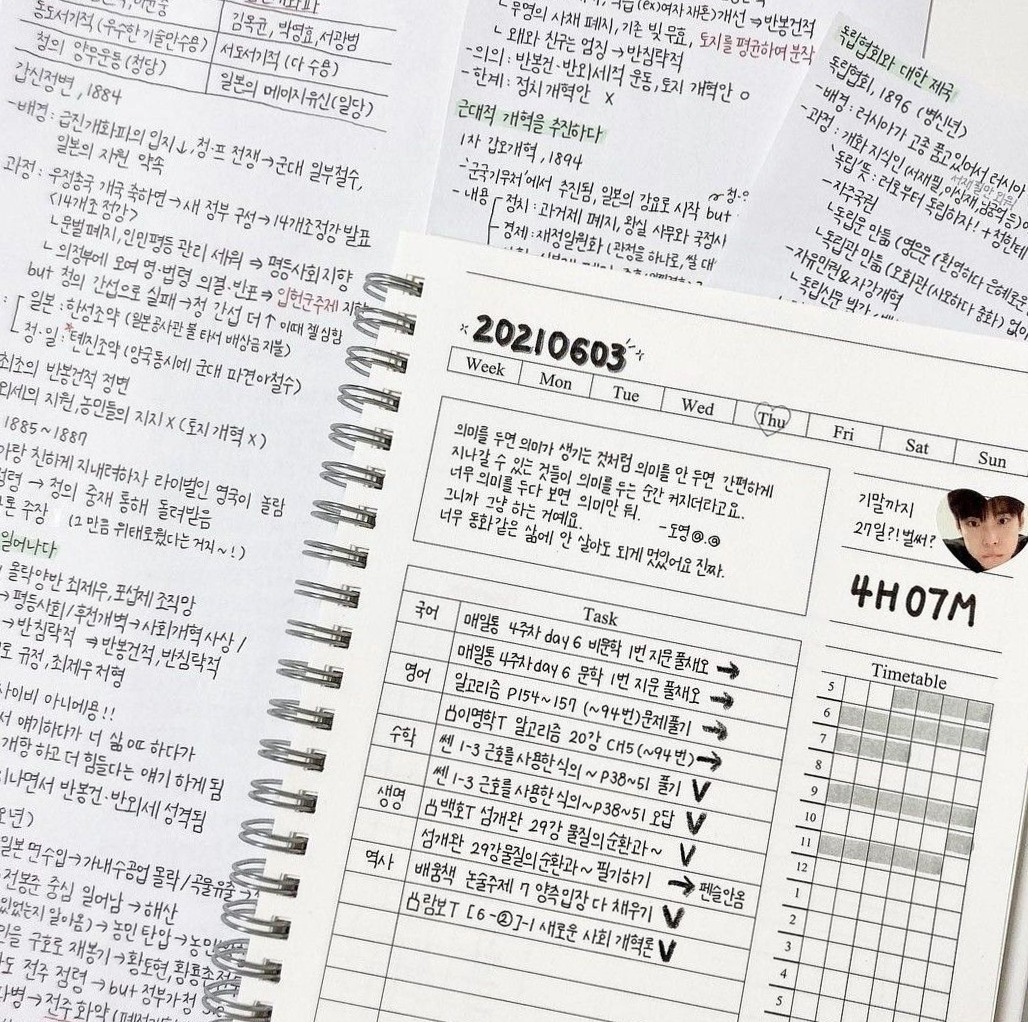 동도서기적 (우수한 기술만수용)
청의 양무운동 (청당)
김옥균, 박영효, 서광범
서도서기적 (다 수용)
일본의 메이지유신 (일당)
갑신정변, 1884
-배경: 급진개화파의 입지↓, 청·프 전쟁→군대 일부철수,
일본의 지원 약속
과정: 우정총국 개국 축하면→새 정부 구성→14개조정강 발표
<14개조 정강>
ㄴ문벌폐지, 인민평등 관리 세워 ⇒ 평등사회 지향
ㄴ의정부에 모여 명·법령 의결·반포⇒입헌군주제 지향
but 청의 간섭으로 실패→청 간섭 더↑ 이때 젤심함
일본: 한성조약 (일본공사관 불 타서 배상금 지불)
청·일: *텐진조약 (양국동시에 군대 파견아철수)
최초의 반봉건적 정변
외세의 지원, 농민들의 지지 X (토지개혁 X)
1885~1887
아랑 친하게 지내려하자 라이벌인 영국이 놀람
점령 → 청의 중재 통해 돌려받음
론 주장 (그만큼 위태로웠다는거지~!)
일어나다
몰락양반 최제우, 포섭제 조직망
→평등사회/후천개벽→사회개혁 사상/
→반침략적 ⇒반봉건적, 반침략적
로 규정, 최제우 처형
사이비 아니에용!!
서 얘기하다가 너 삶 어때 하다가
개항 하고 더 힘들다는 얘기 하게 됨
지나면서 반봉건·반외세 성격됨
일본 면수입→가내수공업 몰락/곡물유출→
전봉준 중심 일어남→해산
있었는지 알아옴)→농민 탄압→농민
을 구호로 재봉기→황토현, 황룡촌전
도 전주 점령 →but 정부가 청
다병→전주화약
(ex)여자 재혼)개선 ⇒반봉건적
ㄴ무명의 사채 폐지, 기존 빚 무효, 토지를 평균하여 분작
ㄴ왜와 친구는 엄징 →반침략적
-의의: 반봉건·반외세적 운동, 토지 개혁안 O
-한계: 정치개혁안 X
근대적 개혁을 추진하다
1차 갑오개혁, 1894
-'군국기무처'에서 추진됨, 일본의 강요로 시작 but
-내용
정치: 과거제 폐지, 왕실 사무와 국정사
경제: 재정일원화 (관청을 하나로, 쌀 대
독립협회와 대한 제국
독립협회, 1896 (병신년)
-배경: 러시아가 고종 품고있어서 러시아
-과정: 개화 지식인 (서재필, 이상재, 남궁억 등)이
'독립'뜻: 러로부터 독립하자! + 청한테
-자주국권
ㄴ독립문 만듦 (영은문 (환영하다 은혜로운,
ㄴ독립관 만듦 (모화관 (사모하다 중화) 없애
-자유민권&자강개혁
20210603
Week Mon Tue Wed Thu Fri Sat Sun
의미를 두면 의미가 생기는 것처럼 의미를 안 두면 간편하게
지나갈 수 있는 것들이 의미를 두는 순간 커지더라고요.
너무 의미를 두다 보면 의미만 둬.
그니까 그냥 하는 거예요. -도영@.@
너무 동화같은 삶에 안 살아도 되게 멋있어요 진짜.
기말까지
27일?! 벌써?
4H 07M
Task
국어 매일통 4주차 day 6 비문학 1번 지문 풀채오 →
매일통 4주차 day 6 문학 1번 지문 풀채오 →
영어 알고리즘 P154~157 (~94번)문제풀기 →
이명학T 알고리즘 20강 CH5 (~94번) →
수학 쎈 1-3 근호를 사용한 식의 ~ P38~51 풀기 V
쎈 1-3 근호를 사용한 식의 ~ P38~51 오답 V
생명 백호T 섬개완 29강 물질의순환과~ V
섬개완 29강 물질의순환과~ 필기하기 → 펜슬안옴
역사 배움책 논술주제 7 양측입장 다 채우기 V
람보T [6-②]-1 새로운 사회 개혁론 V
Timetable
5
6
7
8
9
10
11
12
1
2
3
4
5